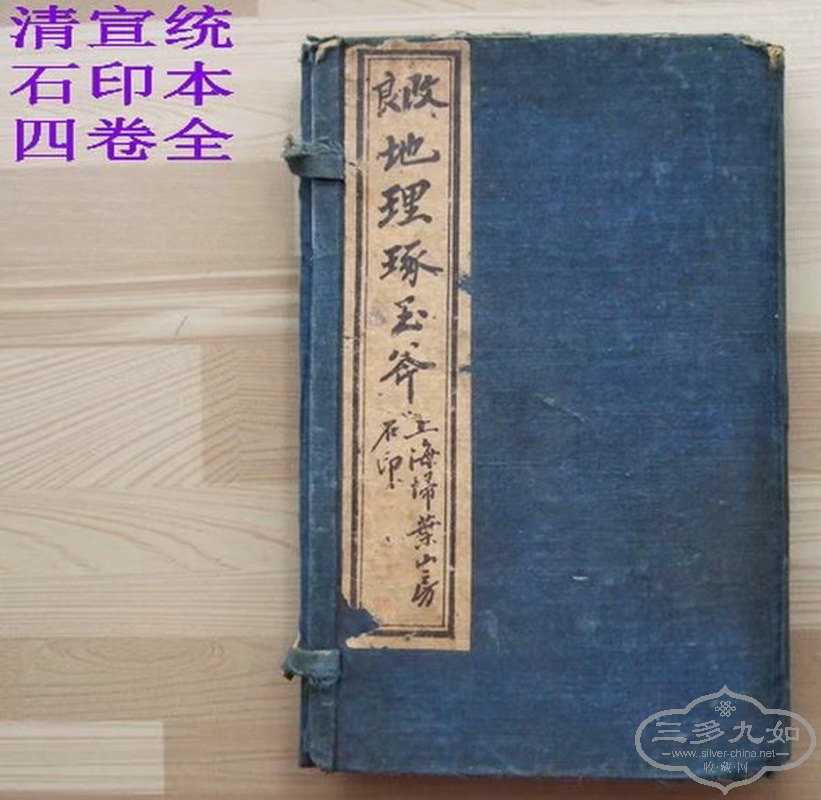 清宣统
石印本
四卷全
改良
地理琢玉斧
上海埽葉山房
石印
三多九如
www.silver-china.net
收·藏·网